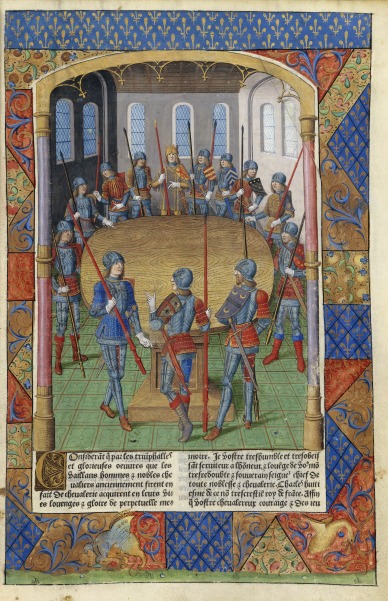 Considera͂t q̄ par les tru͂phalles
et glorieuses oeuures que les
vaillans hommes ⁊ nobles che
ualiers anciennement firent en
fait de cheualerie acquirent en leurs vi
es louenges ⁊ gloire de perpetuelle me
moire. Je vostre treshumble et tresobeis
sa͂t seruiteur a lho͂neur ⁊ loue͂ge de vo
tresredoubte ⁊ souuerain seigñ chief de
toute noblesse ⁊ cheualerie Charles huit
de ce no͂ trescresti͂e roy de fra͂ce. Affin
q̄ vostre cheualereux couraige ⁊ des ieu